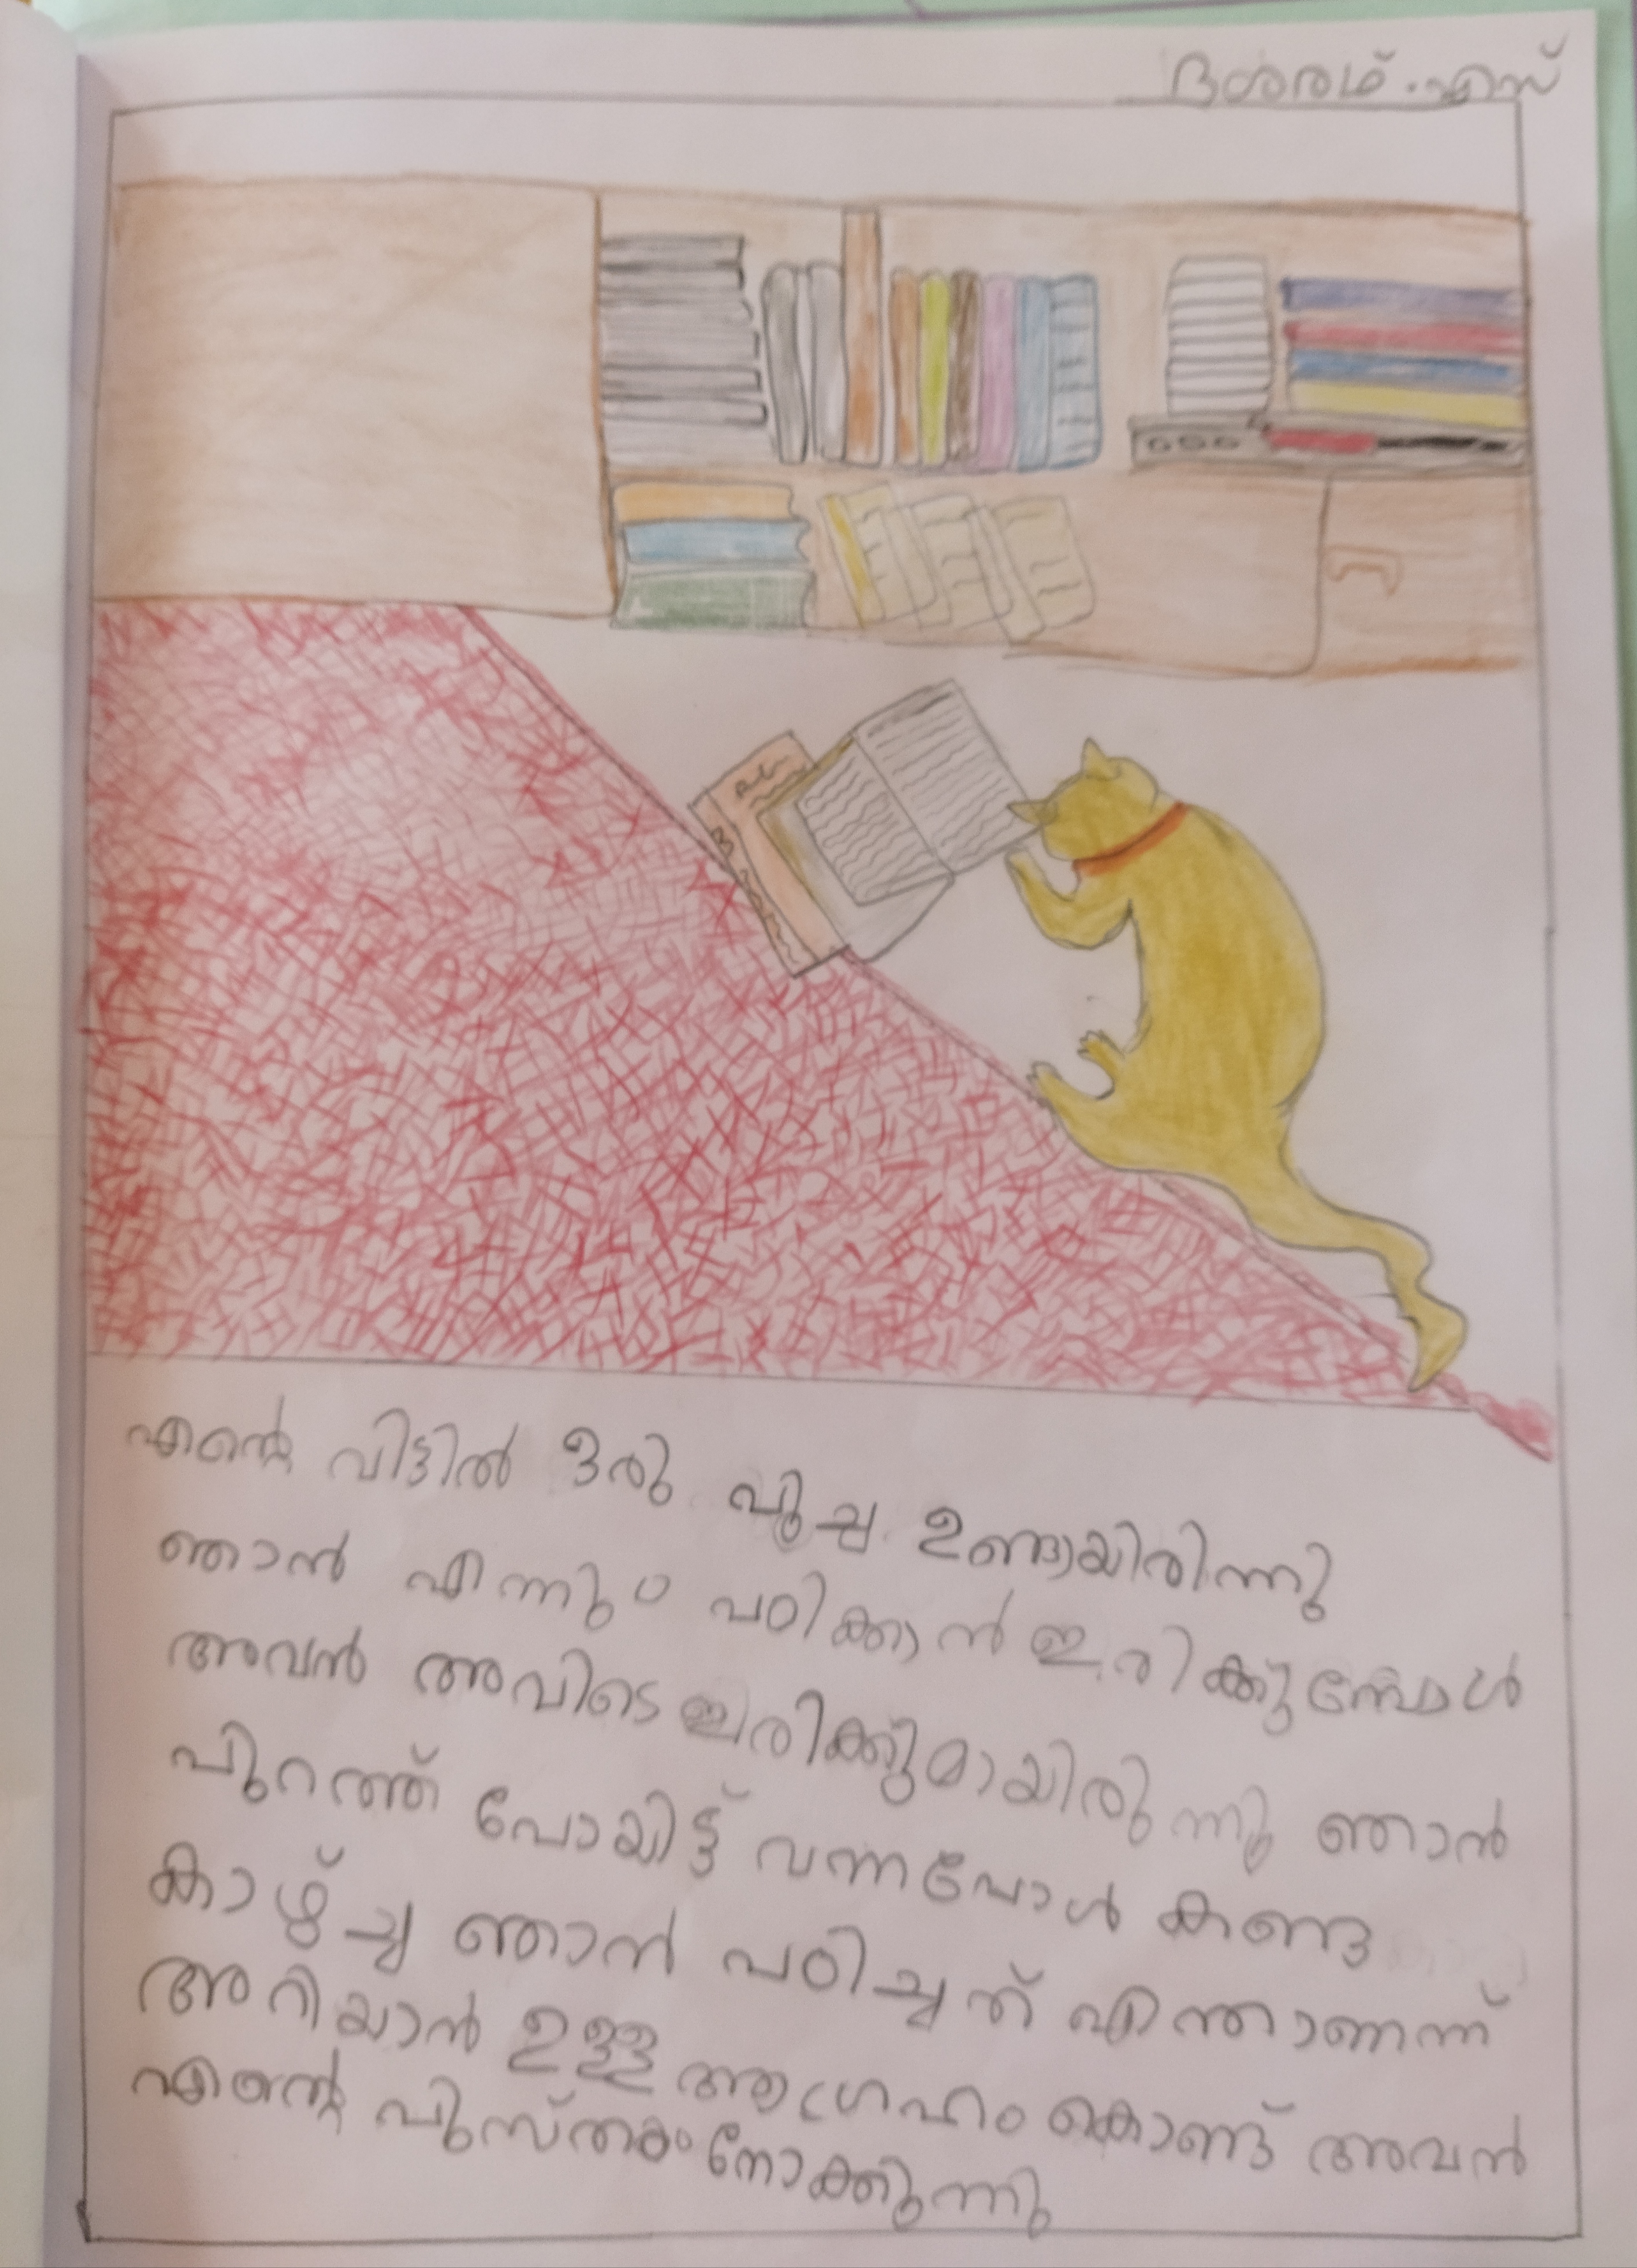 ദശരഥ് . എസ്
എന്റെ വിട്ടിൽ ഒരു പൂച്ച ഉണ്ടായിരിന്നു
ഞാൻ എന്നും പഠിക്കാൻ ഇരിക്കുമ്പോൾ
അവൻ അവിടെ ഇരിക്കുമായിരുന്നു ഞാൻ
പുറത്ത് പോയിട്ട് വന്നപോൾ കണ്ട
കാഴ്ച്ച ഞാൻ പഠിച്ചത് എന്താണന്ന്
അറിയാൻ ഉള്ള ആഗ്രഹം കൊണ്ട് അവൻ
എന്റെ പുസ്തകം നോക്കുന്നു